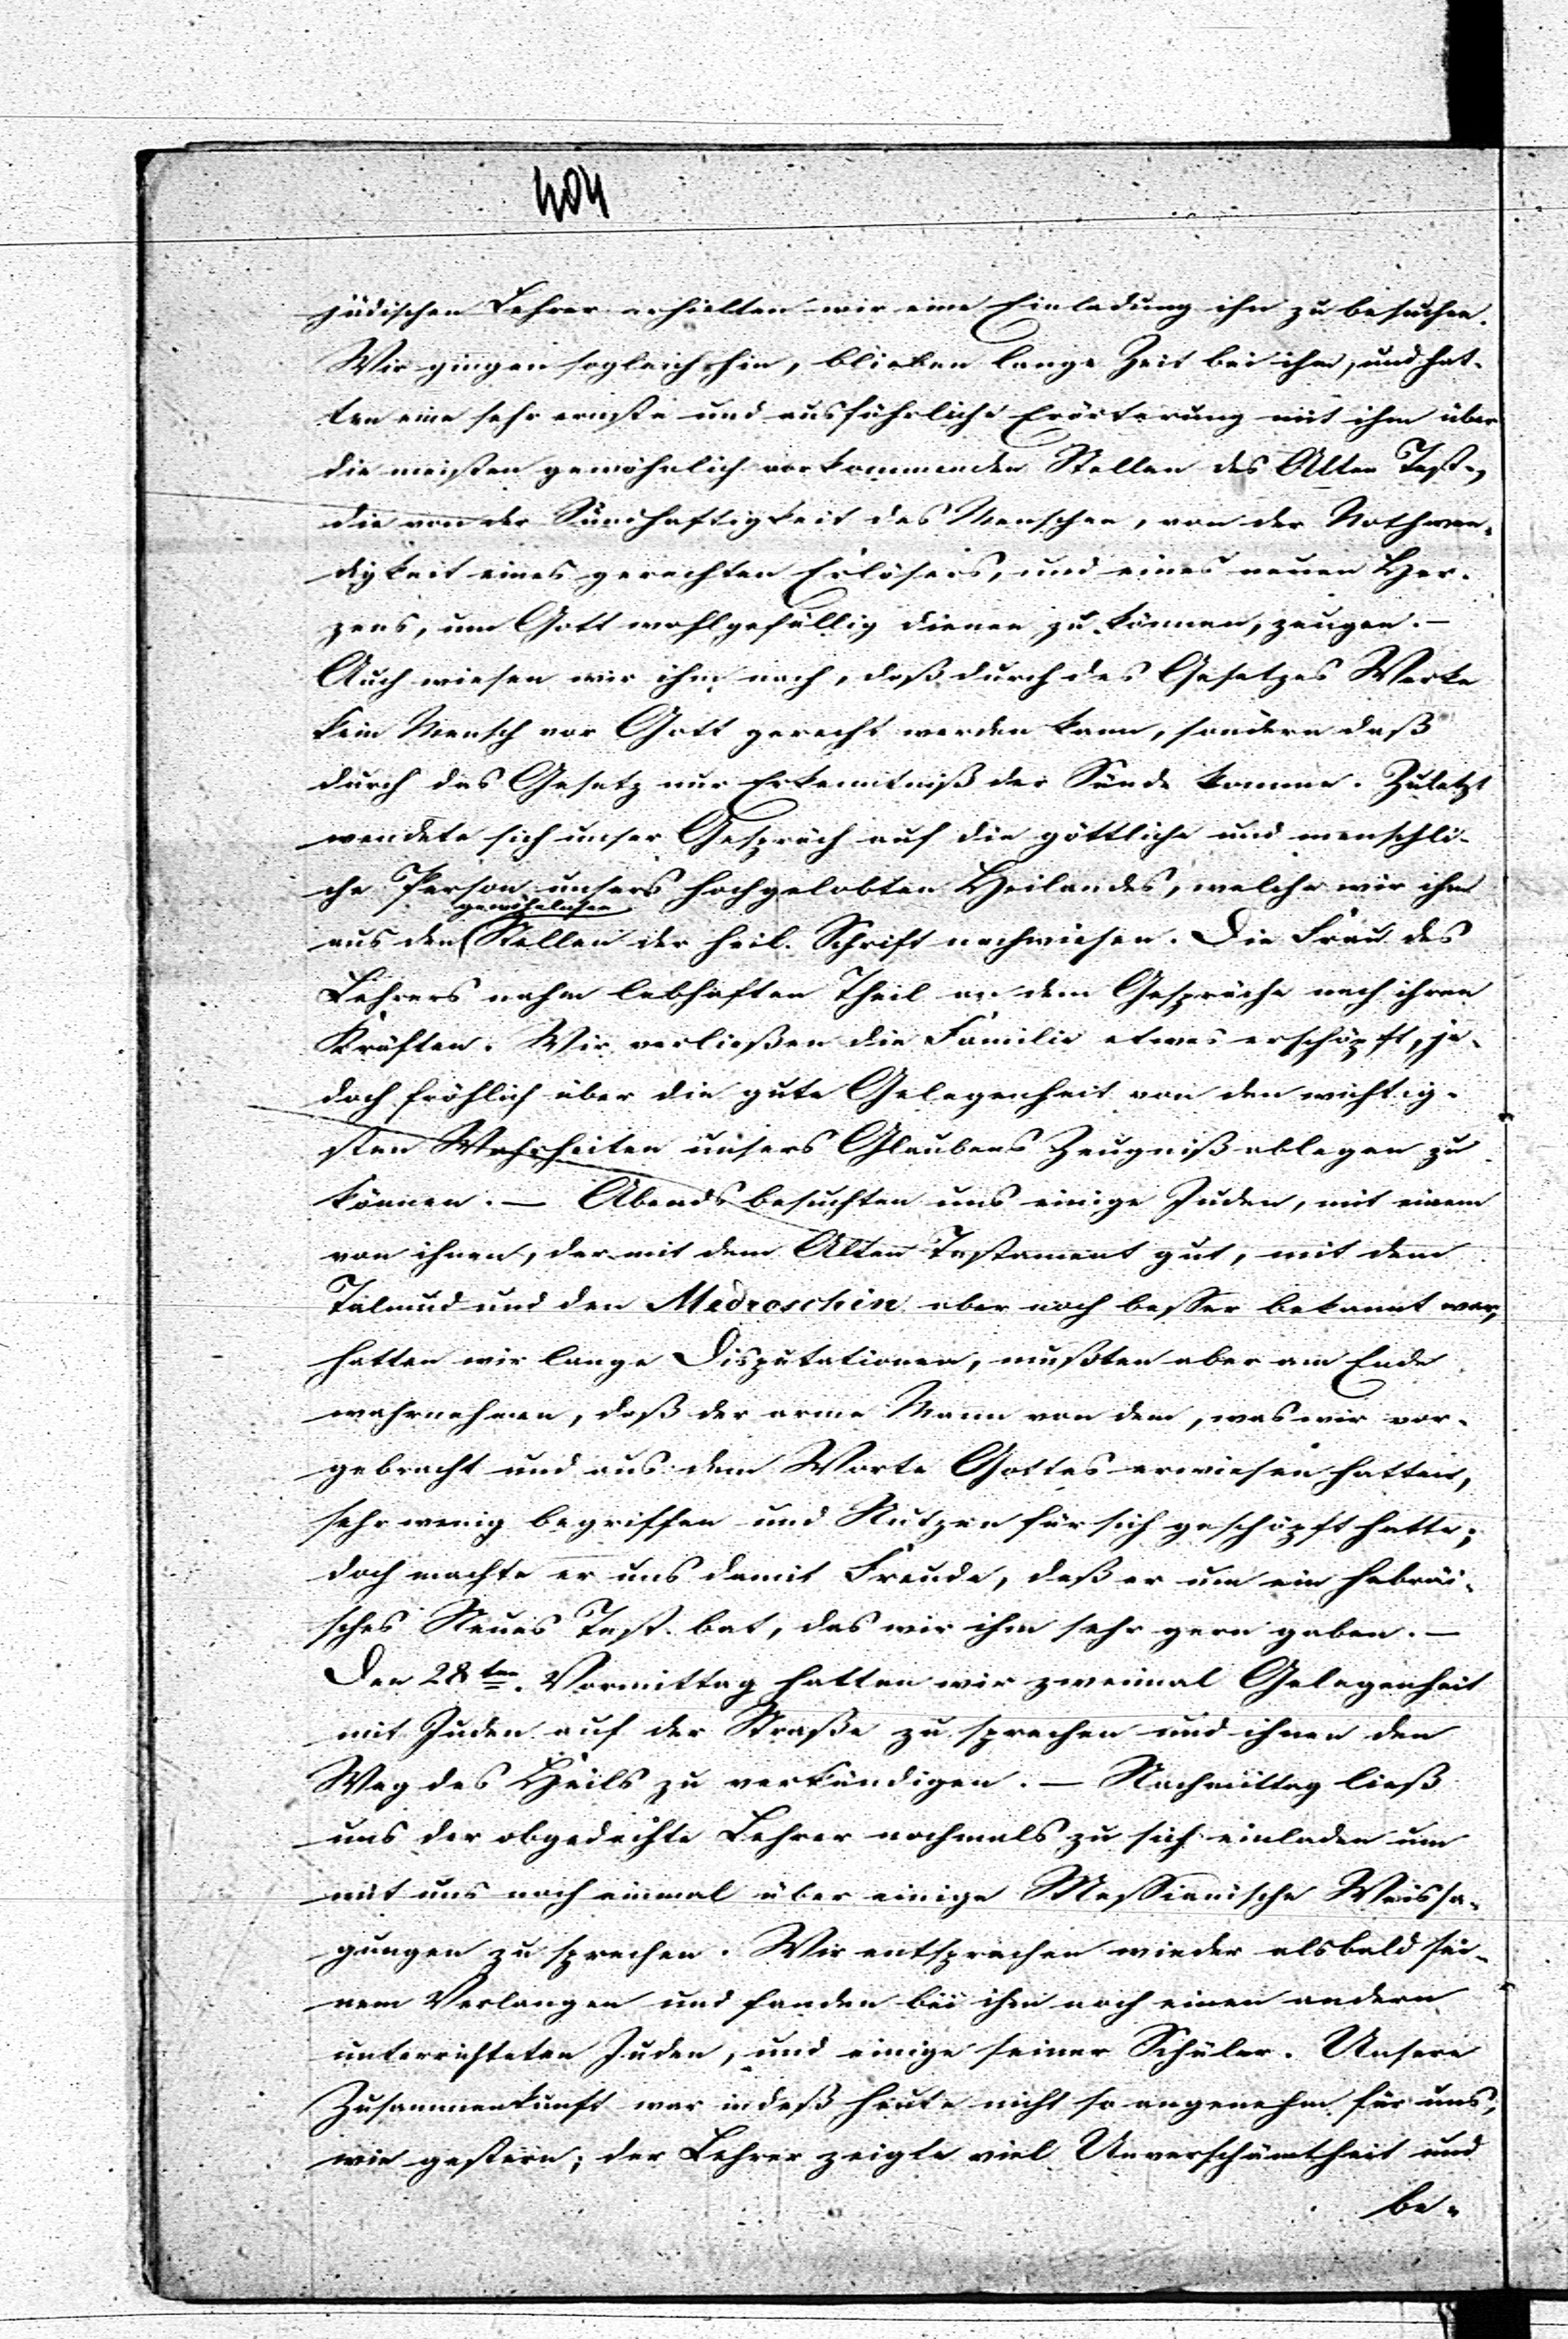 404
jüdischen Lehrer erhielten wir eine Einladung ihn zu besuchen.
Wir gingen sogleich hin, blieben lange Zeit bei ihm, und hat-
ten eine sehr ernste und ausführliche Erörterung mit ihm über
die meisten gewöhnlich vorkommenden Stellen des Alten Test.,
die von der Sündhaftigkeit des Menschen, von der Nothwen-
digkeit eines gerechten Erlösers, und eines neuen Her-
zens, um Gott wohlgefällig dienen zu können, zeugen. —
Auch wiesen wir ihm nach, daß durch des Gesetzes Werke
kein Mensch vor Gott gerecht werden kann, sondern daß
durch das Gesetz nur Erkenntniß der Sünde komme. Zuletzt
wendete sich unser Gespräch auf die göttliche und menschli-
che Person unsers hochgelobten Heilandes, welche wir ihm
gewöhnlichen
aus den Stellen der heil. Schrift nachwiesen. Die Frau des
Lehrers nahm lebhaften Theil an dem Gespräche nach ihren
Kräften. Wir verließen die Familie etwas erschöpft, je-
doch fröhlich über die gute Gelegenheit von den wichtig-
sten Wahrheiten unsers Glaubens Zeugniß ablegen zu
können. — Abends besuchten uns einige Juden, mit einem
von ihnen, der mit dem Alten Testament gut, mit dem
Talmud und den Medroschin aber noch besser bekannt war,
hatten wir lange Disputationen, mußten aber am Ende
wahrnehmen, daß der arme Mann von dem, was wir vor-
gebracht und aus dem Worte Gottes erwiesen hatten,
sehr wenig begriffen und Nutzen für sich geschöpft hatte;
doch machte er uns damit Freude, daß er um ein hebräi-
sches Neues Test. bat, das wir ihm sehr gern gaben. —
Den 28ten. Vormittag hatten wir zweimal Gelegenheit
mit Juden auf der Straße zu sprechen und ihnen den
Weg des Heils zu verkündigen. — Nachmittag ließ
uns der obgedachte Lehrer nochmals zu sich einladen um
mit uns noch einmal über einige Messianische Weissa-
gungen zu sprechen. Wir entsprachen wieder alsbald sei-
nem Verlangen und fanden bei ihm noch einen andern
unterrichteten Juden, und einige seiner Schüler. Unsere
Zusammenkunft war indeß heute nicht so angenehm für uns,
wie gestern; der Lehrer zeigte viel Unverschämtheit und
be-